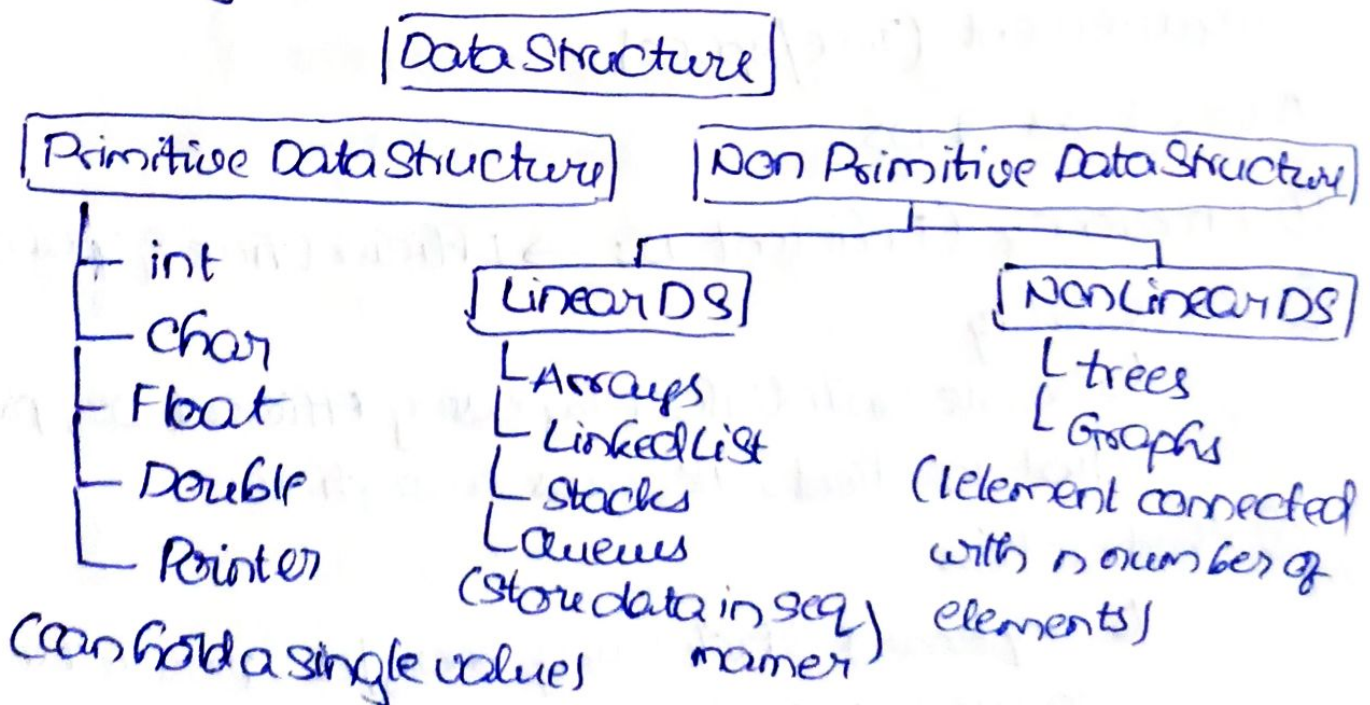 Data Structure
Primitive Data Structure
Non Primitive Data Structure
int
Char
Float
Double
Pointer
(can hold a single values
Linear DS
Arrays
Linked List
Stacks
Queues
(Store data in seq
manner)
Non Linear DS
trees
Graphs
(1 element connected
with n number of
elements)